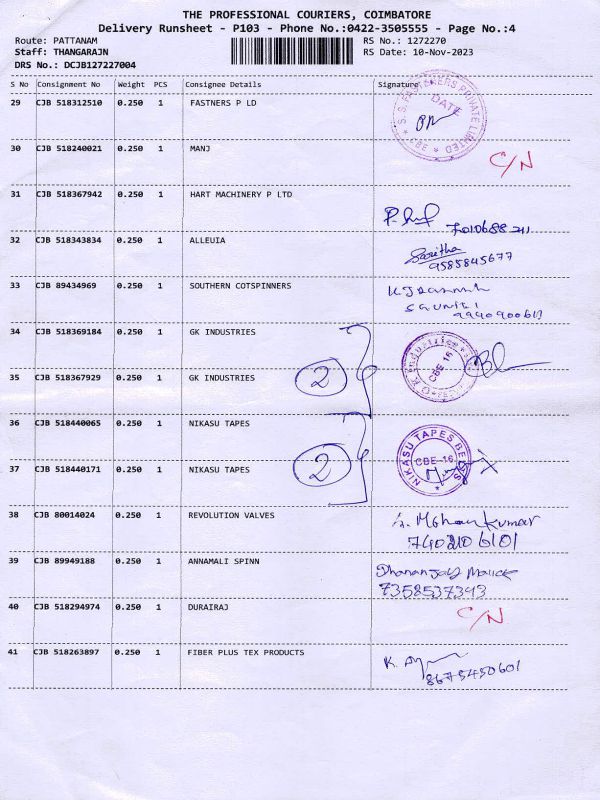 THE PROFESSIONAL COURIERS, COIMBATORE
Delivery Runsheet - P103 - Phone No.:0422-3505555 - Page No.:4
Route: PATTANAM RS No.: 1272270
Staff: THANGARAJN RS Date: 10-Nov-2023
DRS No.: DCJB127227004
S No Consignment No Weight PCS Consignee Details Signature
29 CJB 518312510 0.250 1 FASTNERS P LD
DATE
30 CJB 518240021 0.250 1 MANJ C/N
31 CJB 518367942 0.250 1 HART MACHINERY P LTD
32 CJB 518343834 0.250 1 ALLEUIA Saritha
9585845677
33 CJB 89434969 0.250 1 SOUTHERN COTSPINNERS
34 CJB 518369184 0.250 1 GK INDUSTRIES
35 CJB 518367929 0.250 1 GK INDUSTRIES 2 CBE-16
36 CJB 518440065 0.250 1 NIKASU TAPES
37 CJB 518440171 0.250 1 NIKASU TAPES 2 NIKASU TAPES BELTS CBE-16
38 CJB 80014024 0.250 1 REVOLUTION VALVES Mohan Kumar
39 CJB 89949188 0.250 1 ANNAMALI SPINN Dhananjay Malick
7358537393
40 CJB 518294974 0.250 1 DURAIRAJ C/N
41 CJB 518263897 0.250 1 FIBER PLUS TEX PRODUCTS
8675450601